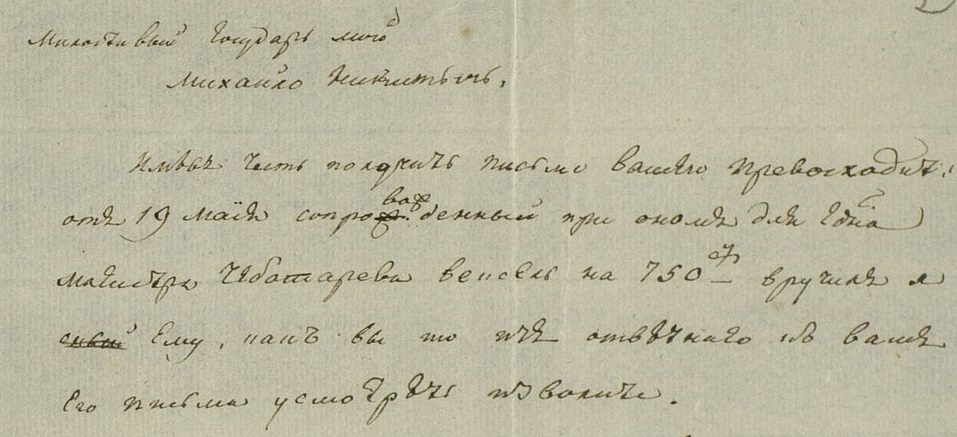 Милостивый Государь мой
Михайло Никитичь,
Имевъ честь получить письмо вашего превосходит:
отъ 19 Маїя сопровожденный при ономъ для Г-на
магистра Чеботарева вексель на 750 вручилъ я
оный Ему, какъ вы то изъ отвѣтнаго къ вамъ
Его письма усмотрѣть изволите.